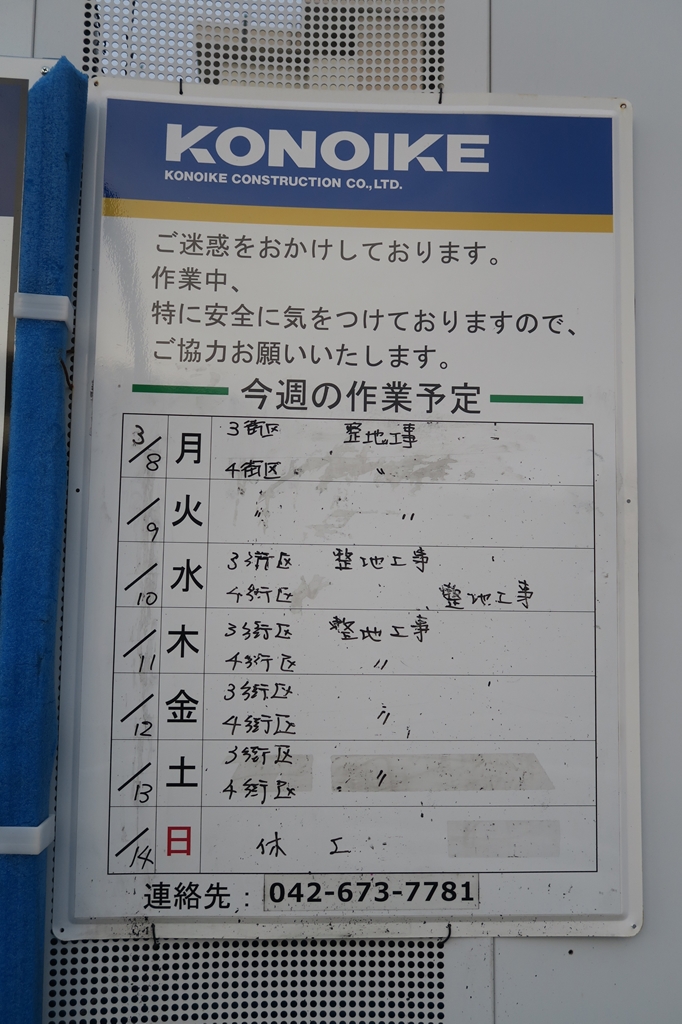 KONOIKE
KONOIKE CONSTRUCTION CO.,LTD.
ご迷惑をおかけしております。
作業中、
特に安全に気をつけておりますので、
ご協力お願いいたします。
今週の作業予定
3/8 月 3街区 整地工事
4街区 〃
/9 火 〃 〃
/10 水 3街区 整地工事
4街区 整地工事
/11 木 3街区 整地工事
4街区 〃
/12 金 3街区
4街区 〃
/13 土 3街区
4街区 〃
/14 日 休 工
連絡先：042-673-7781